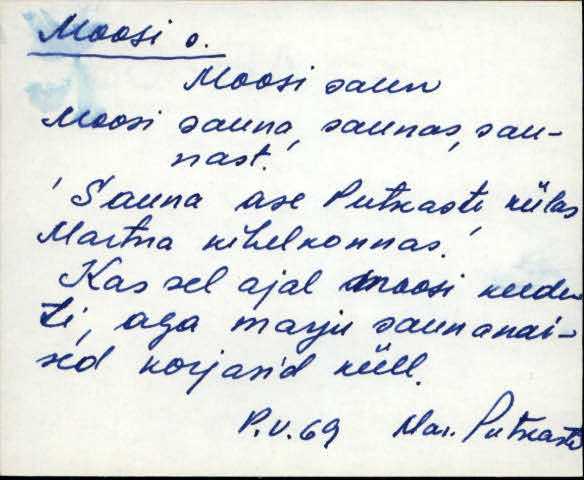 Moosi o.
Moosi saun
Moosi sauna, saunas, sau-
nast.
'Sauna ase Putkaste külas
Martna kihelkonnas.'
Kas sel ajal moosi keede-
ti, aga marju saunanai-
sed korjasid küll.
P.V.69 Mar. Putkaste